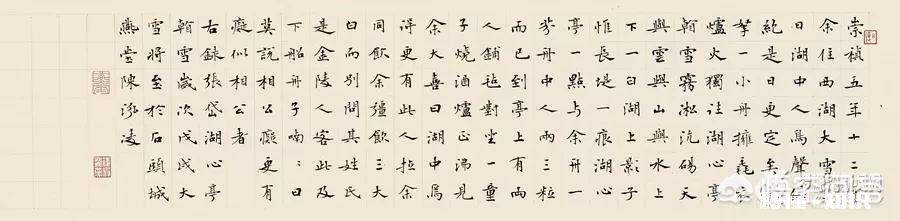 崇禎五年十二月
余住西湖大雪三
日湖中人鳥聲俱
絕是日更定矣余
拏一小舟擁毳衣
爐火獨往湖心亭
看雪霧淞沆碭天
與雲與山與水上
下一白湖上影子
惟長堤一痕湖心
亭一點與余舟一
芥舟中人兩三粒
而已到亭上有兩
人鋪氈對坐一童
子燒酒爐正沸見
余大喜曰湖中焉
得更有此人拉余
同飲余強飲三大
白而別問其姓氏
是金陵人客此及
下船舟子喃〻曰
莫說相公癡更有
癡似相公者
右錄張岱湖心亭
看雪歲次戊戌大
雪將至於石頭城
燕堂陳泓凌